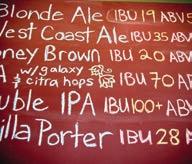 Blonde Ale IBU 19 ABV
West Coast Ale IBU 35 ABV
oney Brown IBU 20 ABV
A w/ galaxy & citra hops IBU 70 AV
uble IPA IBU 100+ AB
illa Porter IBU 28 A